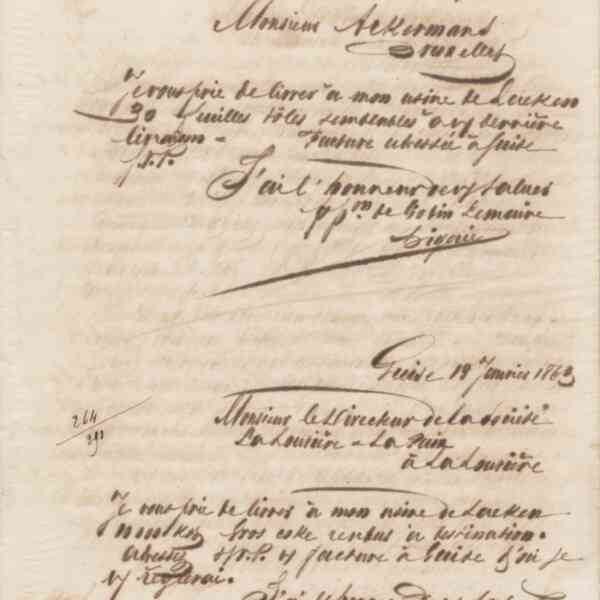 Monsieur Ackermans
Bruxelles
Je vous prie de livrer à mon usine de Laeken
30 feuilles tôles semblables à vs dernière
livraison = Facture adressée à Guise
J'ai l'honneur de vs saluer
ppon de Godin Lemaire
Guise 19 Janvier 186
264
Monsieur le Directeur de la Société
La Louvière & La Paix
à La Louvière
Je vous prie de livrer à mon usine de Laeken
gros coke rendus à destination.
Adressez et facture à Guise d'où je
vs règlerai.